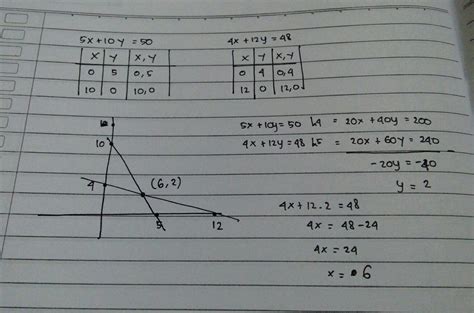 5x+10y = 50
x y x,y
0 5 0,5
10 0 10,0
4x +12y = 48
x y x,y
0 4 0,4
12 0 12,0
5x+10y = 50 |x4 = 20x + 40y = 200
4x+12y = 48 |x5 = 20x + 60y = 240
-20y = -40
y = 2
4x + 12 . 2 = 48
4x = 48 - 24
4x = 24
x = 6
10
4
(6,2)
5
12